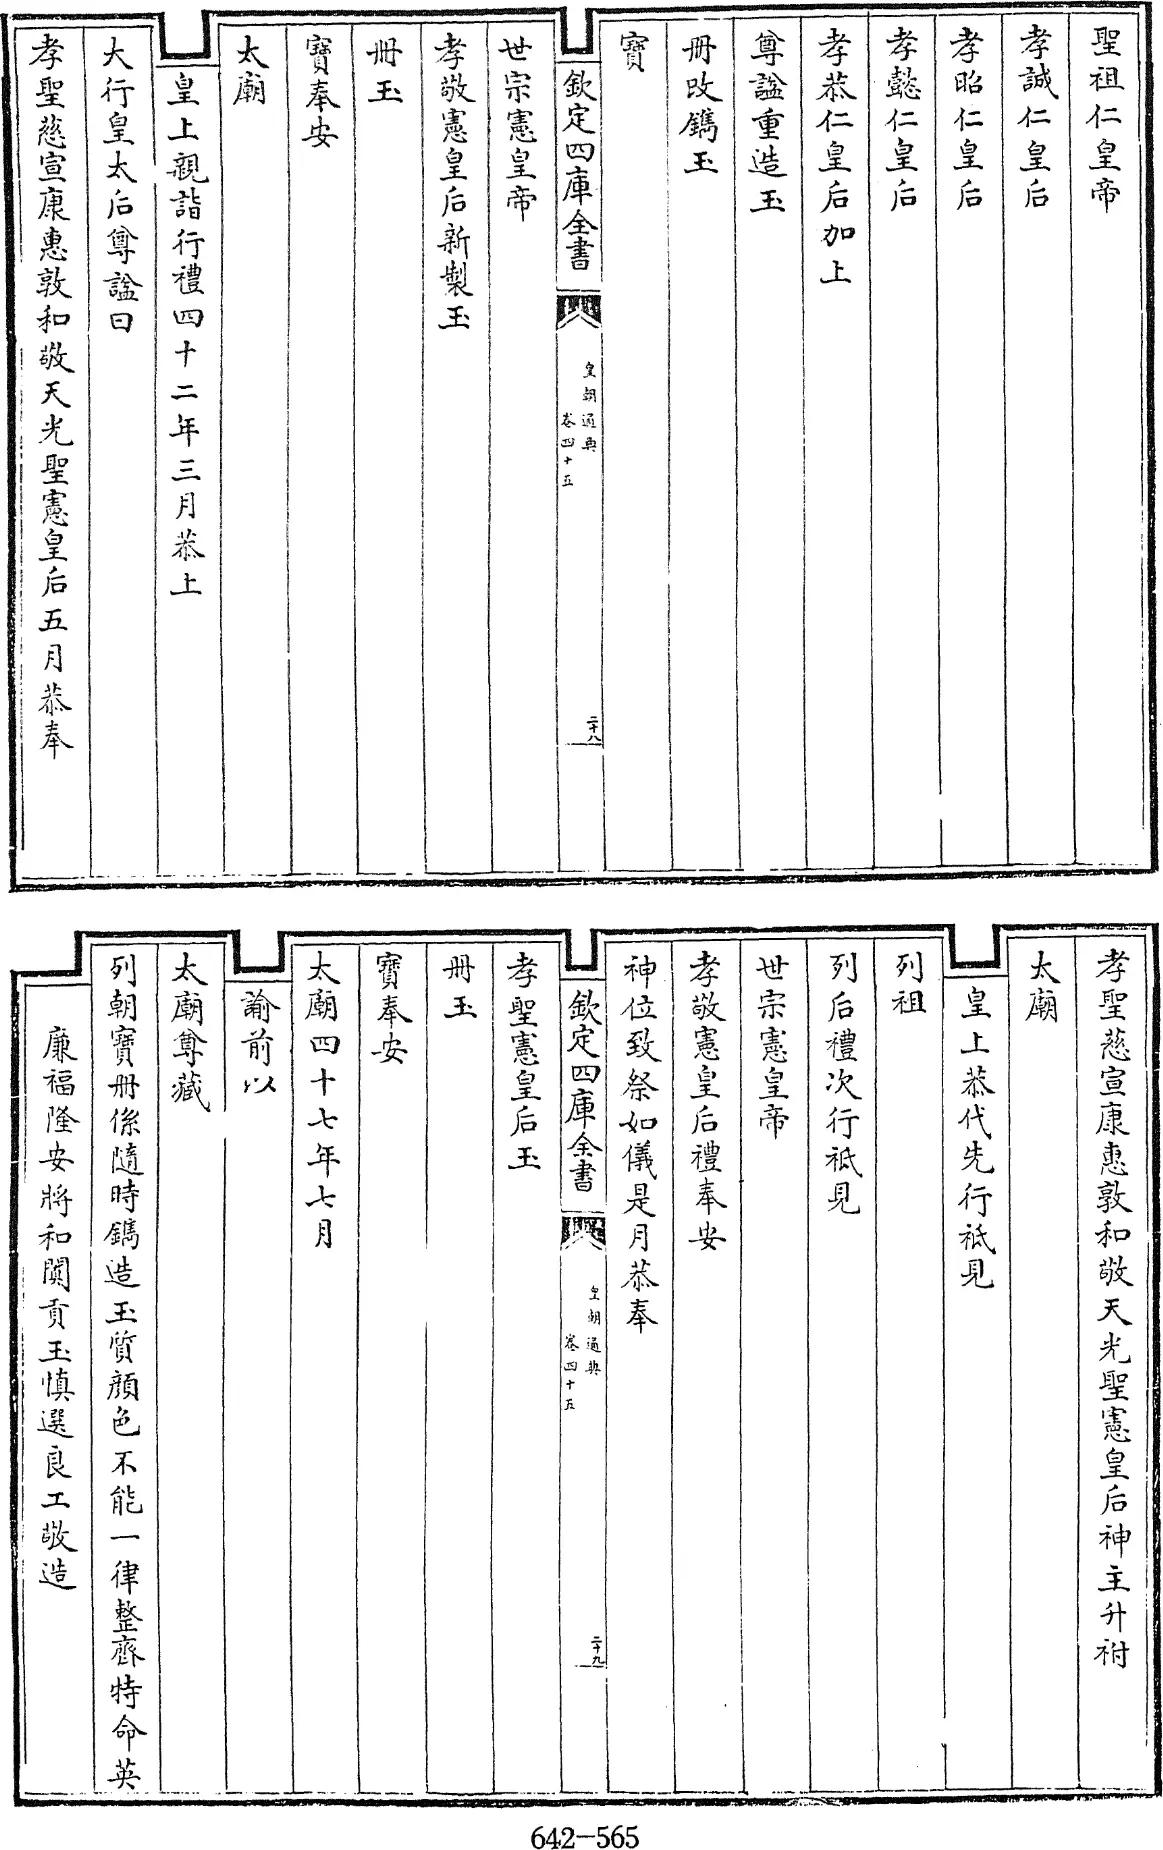 聖祖仁皇帝
孝誠仁皇后
孝昭仁皇后
孝懿仁皇后
孝恭仁皇后加上
尊諡重造玉
冊改鐫玉
寶
欽定四庫全書
皇朝通典
卷四十五
二十八
世宗憲皇帝
孝敬憲皇后新製玉
冊玉
寶奉安
太廟
皇上親詣行禮四十二年三月恭上
大行皇太后尊諡曰
孝聖慈宣康惠敦和敬天光聖憲皇后五月恭奉
孝聖慈宣康惠敦和敬天光聖憲皇后神主升祔
太廟
皇上恭代先行祗見
列祖
列后禮次行祗見
世宗憲皇帝
孝敬憲皇后禮奉安
神位致祭如儀是月恭奉
欽定四庫全書
皇朝通典
卷四十五
二十九
孝聖憲皇后玉
冊玉
寶奉安
太廟四十七年七月
諭前以
太廟尊藏
列朝寶冊係隨時鐫造玉質顏色不能一律整齊特命英
廉福隆安將和闐貢玉慎選良工敬造
642-565